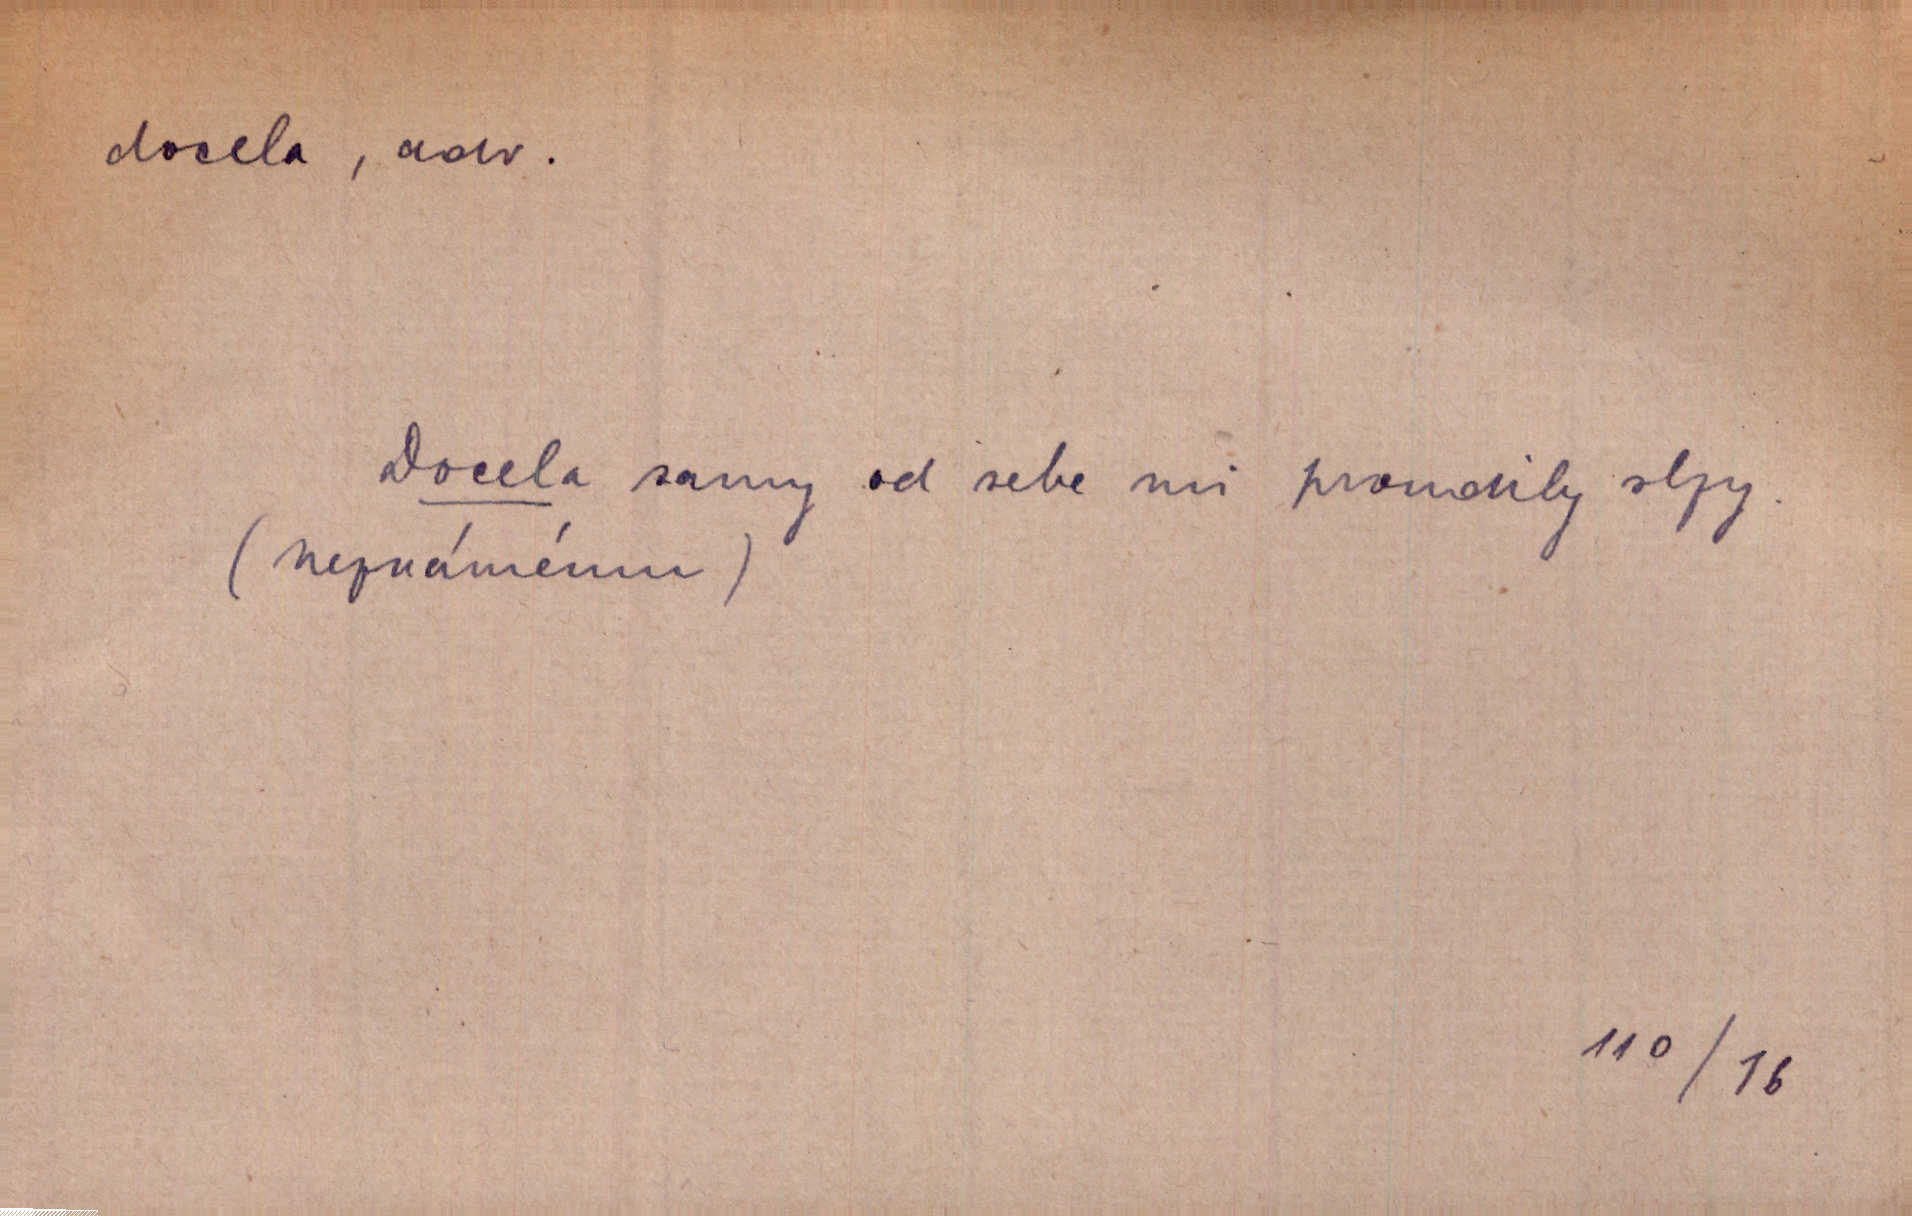 docela, adv.
Docela samy od sebe mi proudily slzy.
(neznámému)
110/16